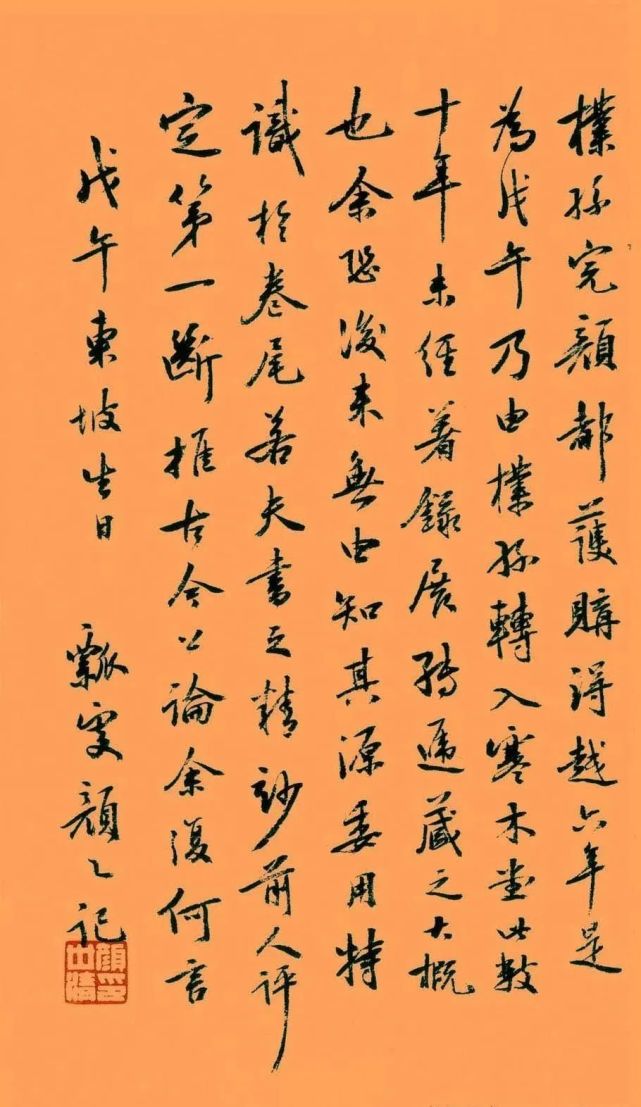 樸孫完顏都護購得越六年是
為戊午乃由樸孫轉入寒木堂此數
十年未經著錄展轉遞藏之大概
也余恐後來無由知其源委用特
識於卷尾若夫書之精妙前人評
定第一斷推古今公論余復何言
戊午東坡生日 瓢叟顏&#8203;記